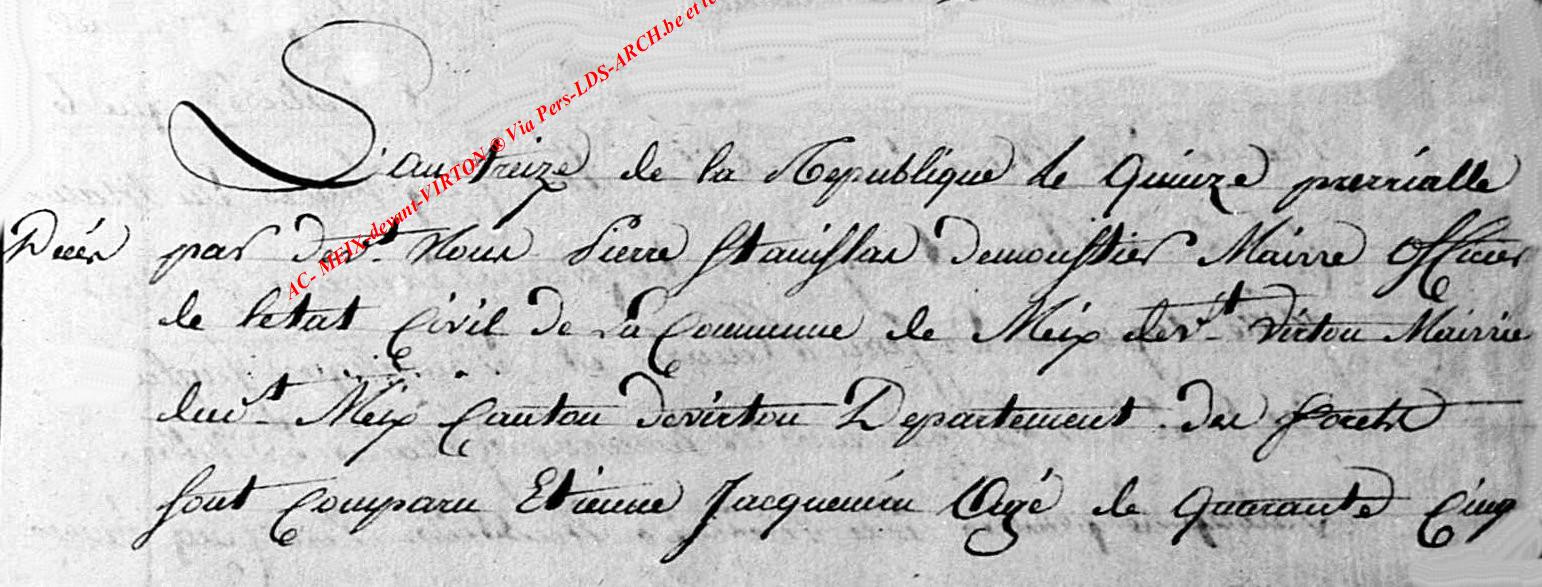 AC- MEIX-devant-VIRTON ® Via Pers-LDS-ARCH.be et le
L'an treize de la Republique le Quinze prerrialle
Décés
par devt. Nous Pierre Stanislas Demoustier Mairre Officier
de letat Civil de La Commune de Meix devt. Virton Mairrie
dudt. Meix Canton de virton Departement des forets
sont Comparu Etienne Jacquemin Agé de Quarante Cinq